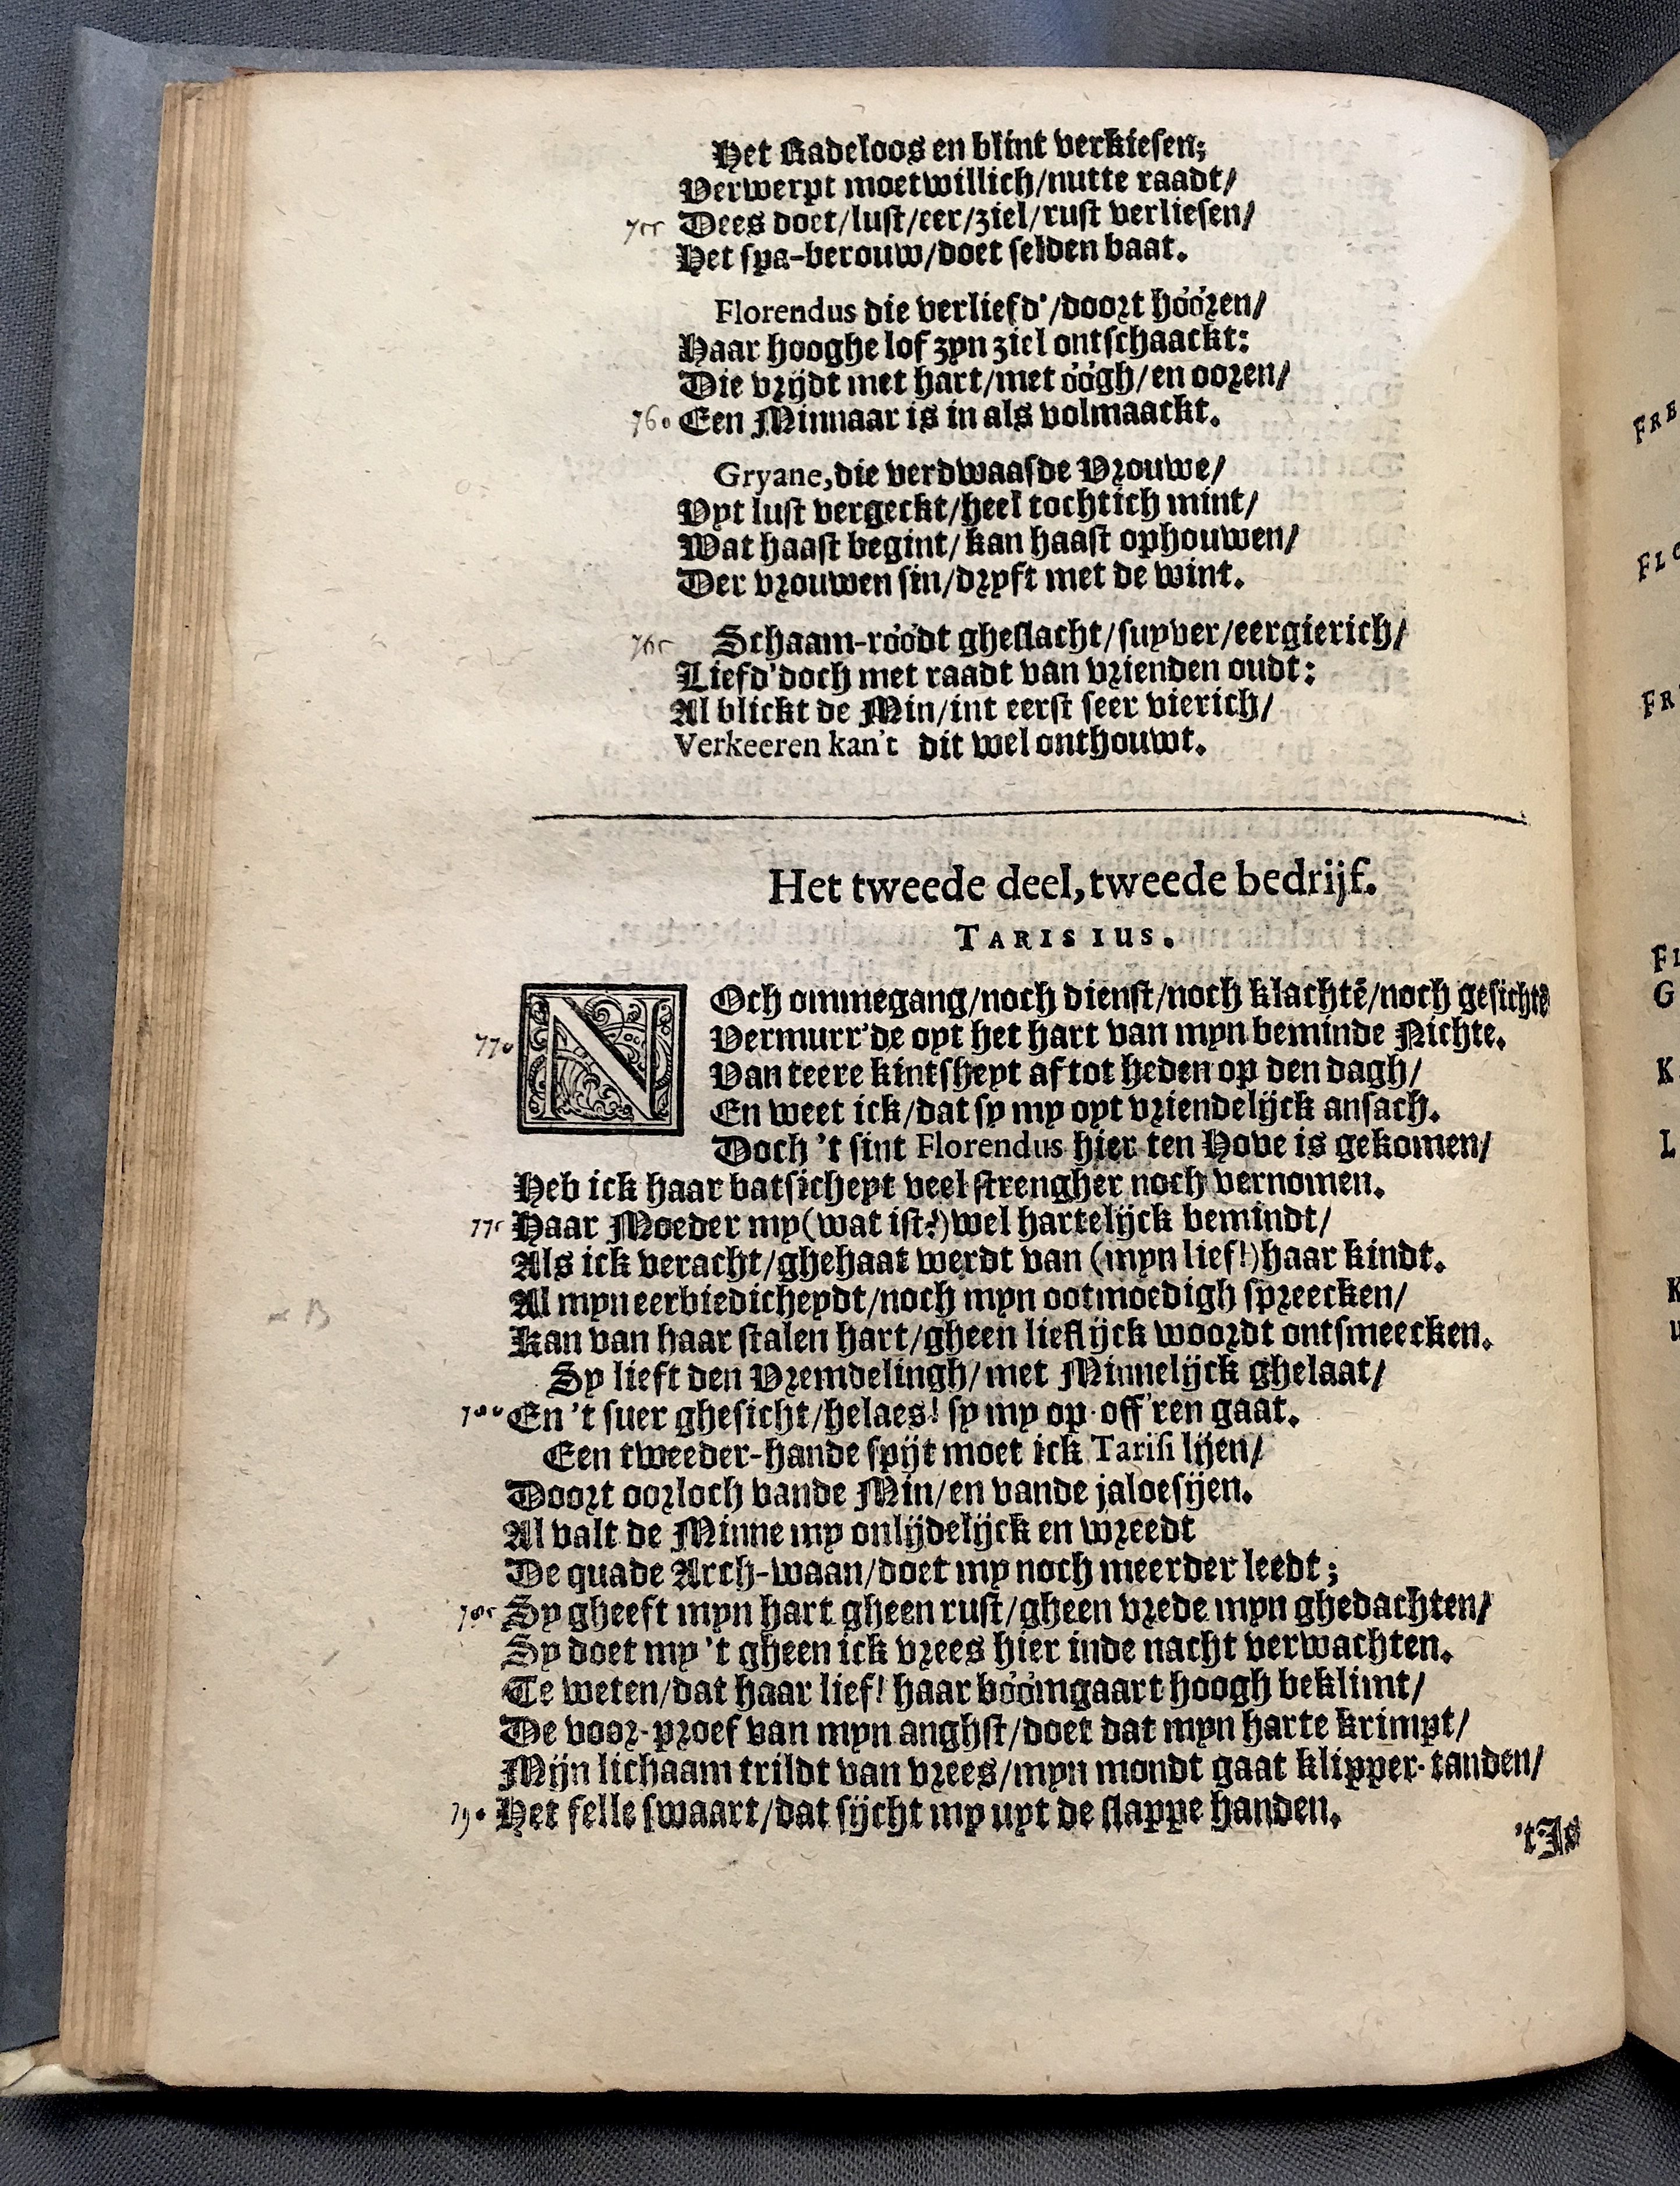 Het Radeloos en blint verkiesen;
Verwerpt moetwillich/nutte raadt/
755 Dees doet/lust/eer/ziel/rust verliesen/
Het spa-berouw/doet selden baat.
Florendus die verliefd'/doort hóóren/
Haar hooghe lof zyn ziel ontschaackt:
Die vrijdt met hart/met óógh/en ooren/
760 Een Minnaar is in als volmaackt.
Gryane, die verdwaasde Vrouwe/
Uyt lust vergeckt/heel tochtich mint/
Wat haast begint/kan haast ophouwen/
Der vrouwen sin/dryft met de wint.
765 Schaam-róódt gheslacht/suyver/eergierich/
Liefd'doch met raadt van vrienden oudt:
Al blickt de Min/int eerst seer vierich/
Verkeeren kan't dit wel onthouwt.
Het tweede deel, tweede bedrijf.
TARISIUS.
NOch ommegang/noch dienst/noch klachtē/noch gesichtē
770 Vermurr'de oyt het hart van myn beminde Nichte.
Van teere kintsheyt af tot heden op den dagh/
En weet ick/dat sy my oyt vriendelijck ansach.
Doch 't sint Florendus hier ten Hove is gekomen/
Heb ick haar batsicheyt veel strengher noch vernomen.
775 Haar Moeder my (wat ist?) wel hartelijck bemindt/
Als ick veracht/ghehaat werdt van (myn lief!) haar kindt.
Al myn eerbiedicheydt/noch myn ootmoedigh spreecken/
Kan van haar stalen hart/gheen lieflijck woordt ontsmeecken.
Sy lieft den Vremdelingh/met Minnelijck ghelaat/
780 En 't suer ghesicht/helaes! sy my op-off'ren gaat.
Een tweeder-hande spijt moet ick Tarisi lijen/
Doort oorloch vande Min/en vande jaloesijen.
Al valt de Minne my onlijdelijck en wreedt
De quade Arch-waan/doet my noch meerder leedt;
785 Sy gheeft myn hart gheen rust/gheen vrede myn ghedachten/
Sy doet my 't gheen ick vrees hier inde nacht verwachten.
Te weten/dat haar lief! haar bóómgaart hoogh beklimt/
De voor-proef van myn anghst/doet dat myn harte krimpt/
Mijn lichaam trildt van vrees/myn mondt gaat klipper-tanden/
790 Het felle swaart/dat sijcht my uyt de slappe handen.
't Is